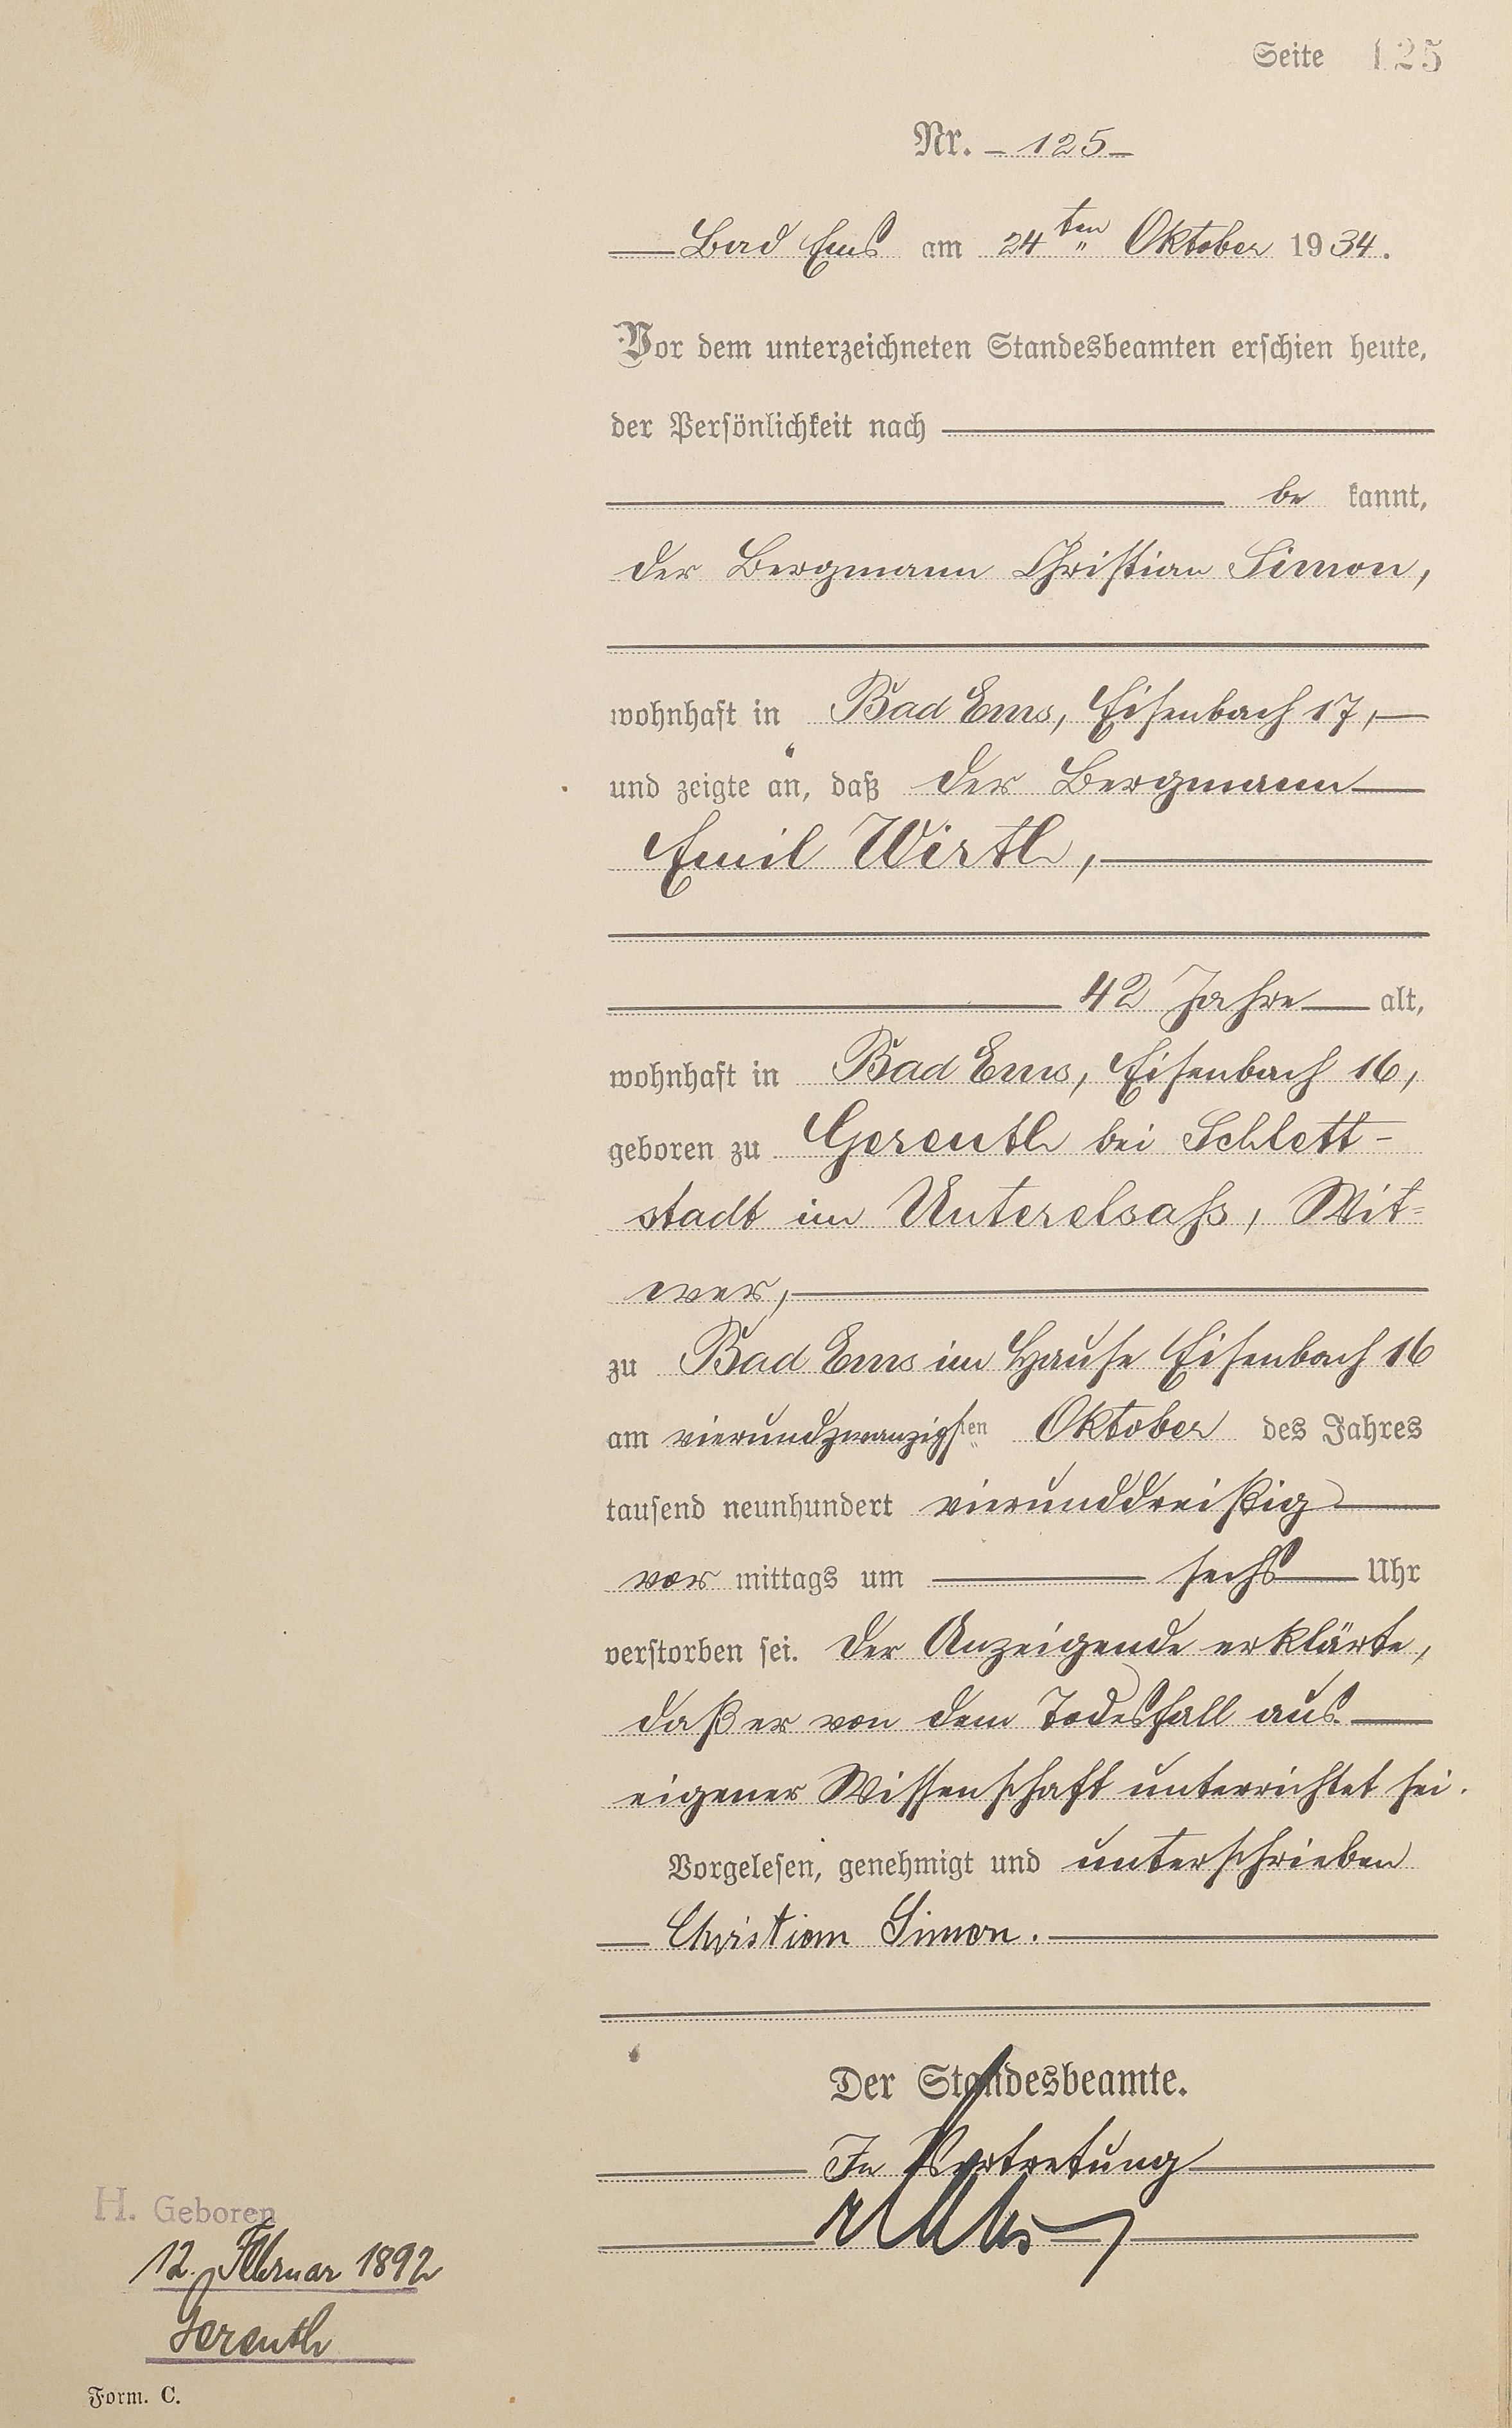 Seite 125
Nr. – 125 –
Bad Ems am 24ten Oktober 1934.
Vor dem unterzeichneten Standesbeamten erschien heute,
der Persönlichkeit nach
be kannt,
der Bergmann Christian Simon,
wohnhaft in Bad Ems, Eisenbach 17,
und zeigte an, daß der Bergmann
Emil Wirth,
42 Jahre alt,
wohnhaft in Bad Ems, Eisenbach 16,
geboren zu Gereuth bei Schlett-
stadt im Unterelsaß, Wit=
wer,
zu Bad Ems im Hause Eisenbach 16
am vierundzwanzigsten Oktober des Jahres
tausend neunhundert vierunddreißig
vor mittags um sechs Uhr
verstorben sei. Der Anzeigende erklärte,
daß er von dem Todesfall aus
eigener Wissenschaft unterrichtet sei.
Vorgelesen, genehmigt und unterschrieben
Christian Simon.
Der Standesbeamte.
In Vertretung
H. Geboren
12. Februar 1892
Gereuth
Form. C.